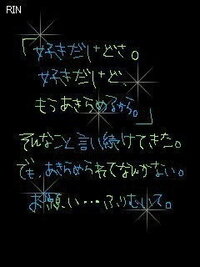 RIN
「好きだけどさ。
好きだけど、
もうあきらめるから。」
そんなこと言い続けてきた。
でも、あきらめられてなんかない。
お願い…ふりむいて。